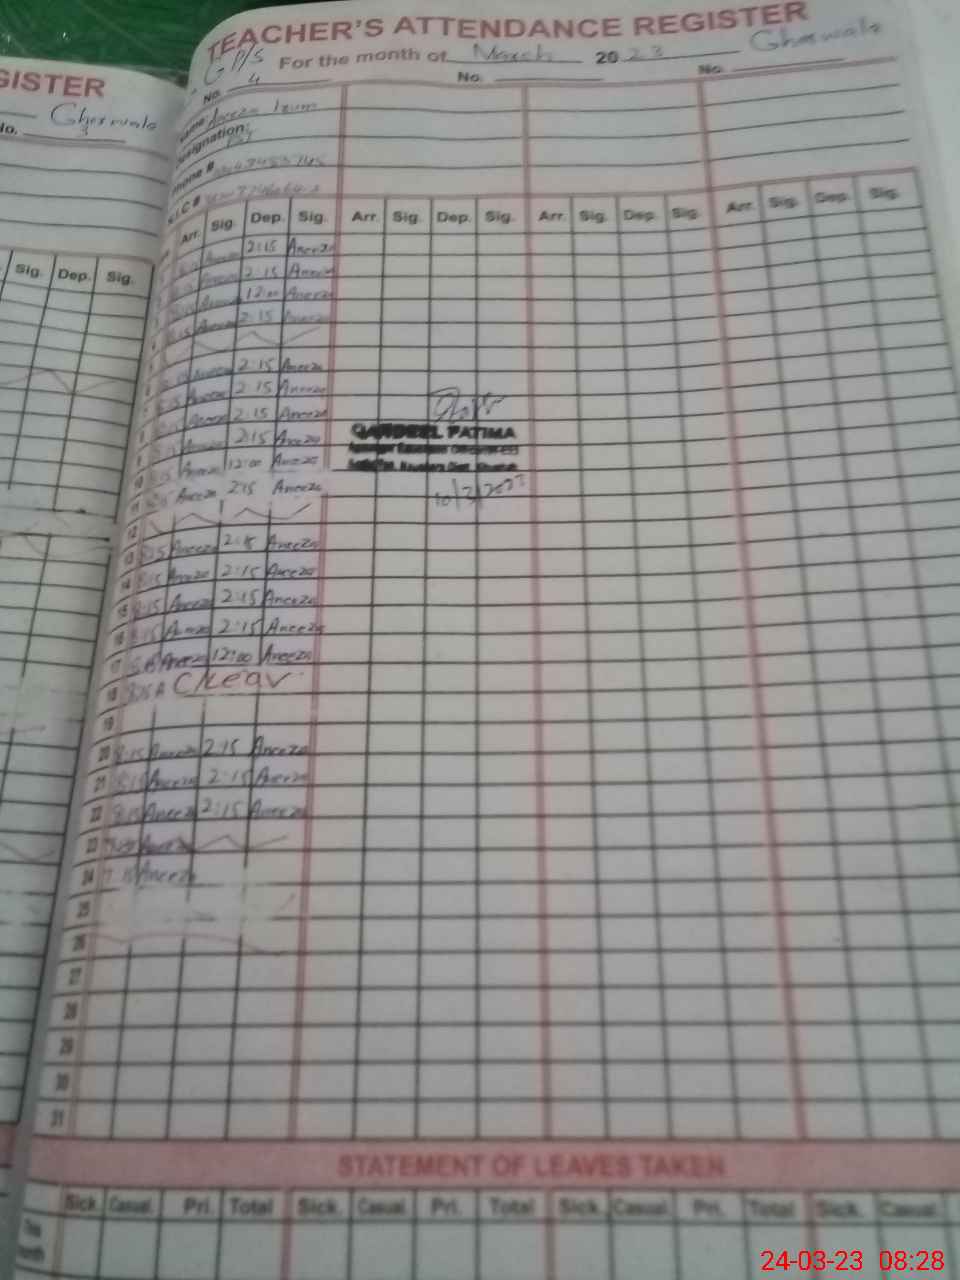 GISTER
Gharwala
No.
Sig. Dep. Sig.
TEACHER'S ATTENDANCE REGISTER
G P/S For the month of March 2023 Gharwala
No. 4 No. No.
Name: Aneeza Irum
Designation:
Phone #
Arr. Sig. Dep. Sig. Arr. Sig. Dep. Sig. Arr. Sig. Dep. Sig. Arr. Sig. Dep. Sig.
Aneeza 2:15 Aneeza
Aneeza 2:15 Aneeza
Aneeza 12:00 Aneeza
Aneeza 2:15 Aneeza
Aneeza 2:15 Aneeza
Aneeza 2:15 Aneeza
Aneeza 2:15 Aneeza
Aneeza 2:15 Aneeza
10 Aneeza 12:00 Aneeza
11 Aneeza 2:15 Aneeza
FATIMA
10/3/2023
12
13 8:15 Aneeza 2:15 Aneeza
14 8:15 Aneeza 2:15 Aneeza
15 8:15 Aneeza 2:15 Aneeza
16 8:15 Aneeza 2:15 Aneeza
17 8:15 Aneeza 12:00 Aneeza
18 C/Leav
19
20 8:15 Aneeza 2:15 Aneeza
21 8:15 Aneeza 2:15 Aneeza
22 8:15 Aneeza 2:15 Aneeza
23
24 7:15 Aneeza
25
26
27
28
29
30
31
STATEMENT OF LEAVES TAKEN
Sick. Casual. Pri. Total Sick. Casual. Pri. Total Sick. Casual. Pri. Total Sick. Casual.
This
Month
24-03-23 08:28